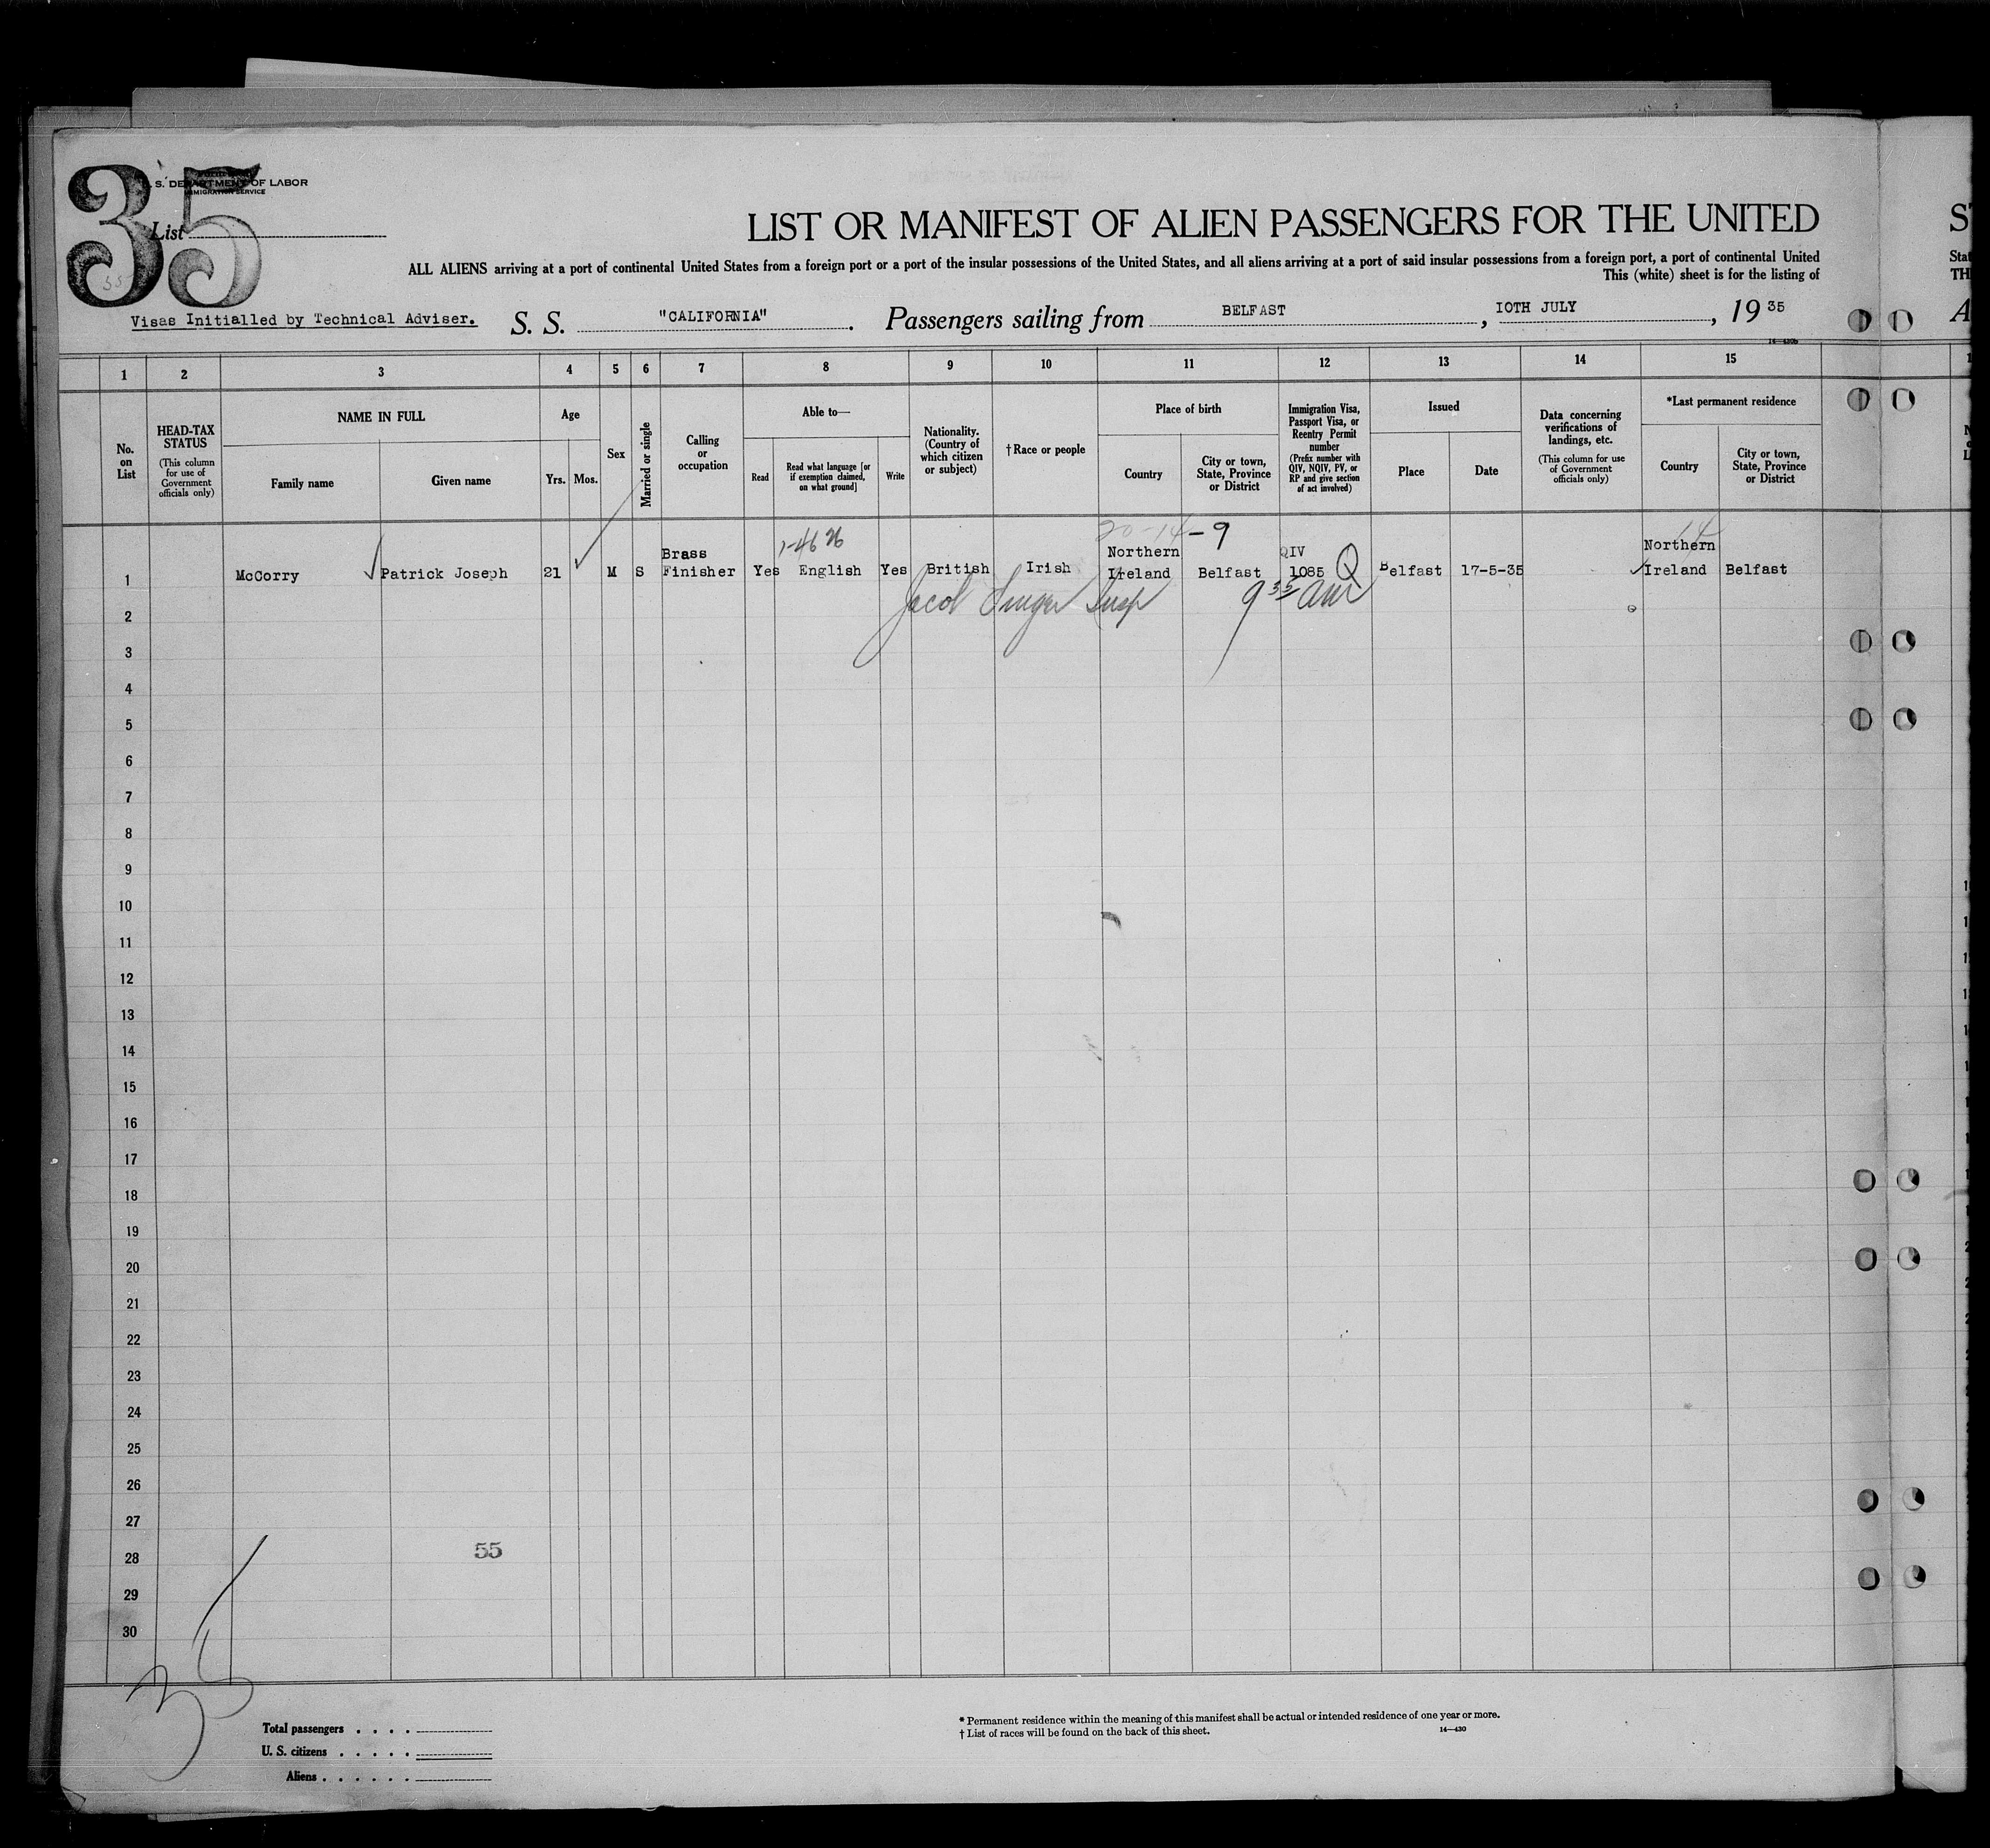 35
U. S. DEPARTMENT OF LABOR
IMMIGRATION SERVICE
List
LIST OR MANIFEST OF ALIEN PASSENGERS FOR THE UNITED
ALL ALIENS arriving at a port of continental United States from a foreign port or a port of the insular possessions of the United States, and all aliens arriving at a port of said insular possessions from a foreign port, a port of continental United
This (white) sheet is for the listing of
Visas Initialled by Technical Adviser. S. S. "CALIFORNIA". Passengers sailing from BELFAST, 10TH JULY, 19 35
1 2 3 4 5 6 7 8 9 10 11 12 13 14 15
No. on List
HEAD-TAX STATUS
(This column for use of Government officials only)
NAME IN FULL
Family name
Given name
Age
Yrs. Mos.
Sex
Married or single
Calling or occupation
Able to—
Read
Read what language [or if exemption claimed, on what ground]
Write
Nationality. (Country of which citizen or subject)
† Race or people
Place of birth
Country
City or town, State, Province or District
Immigration Visa, Passport Visa, or Reentry Permit number
(Prefix number with QIV, NQIV, PV, or RP and give section of act involved)
Issued
Place
Date
Data concerning verifications of landings, etc.
(This column for use of Government officials only)
*Last permanent residence
Country
City or town, State, Province or District
20-14-9 14
1 McCorry Patrick Joseph 21 M S Brass Finisher Yes English Yes British Irish Northern Ireland Belfast QIV 1085 Q Belfast 17-5-35 Northern Ireland Belfast
Jacob Singer Insp 9 35 am
2
3
4
5
6
7
8
9
10
11
12
13
14
15
16
17
18
19
20
21
22
23
24
25
26
27
28
29
30
55
35
Total passengers . . . .
U. S. citizens . . . . .
Aliens . . . . . .
* Permanent residence within the meaning of this manifest shall be actual or intended residence of one year or more.
† List of races will be found on the back of this sheet.
14—430